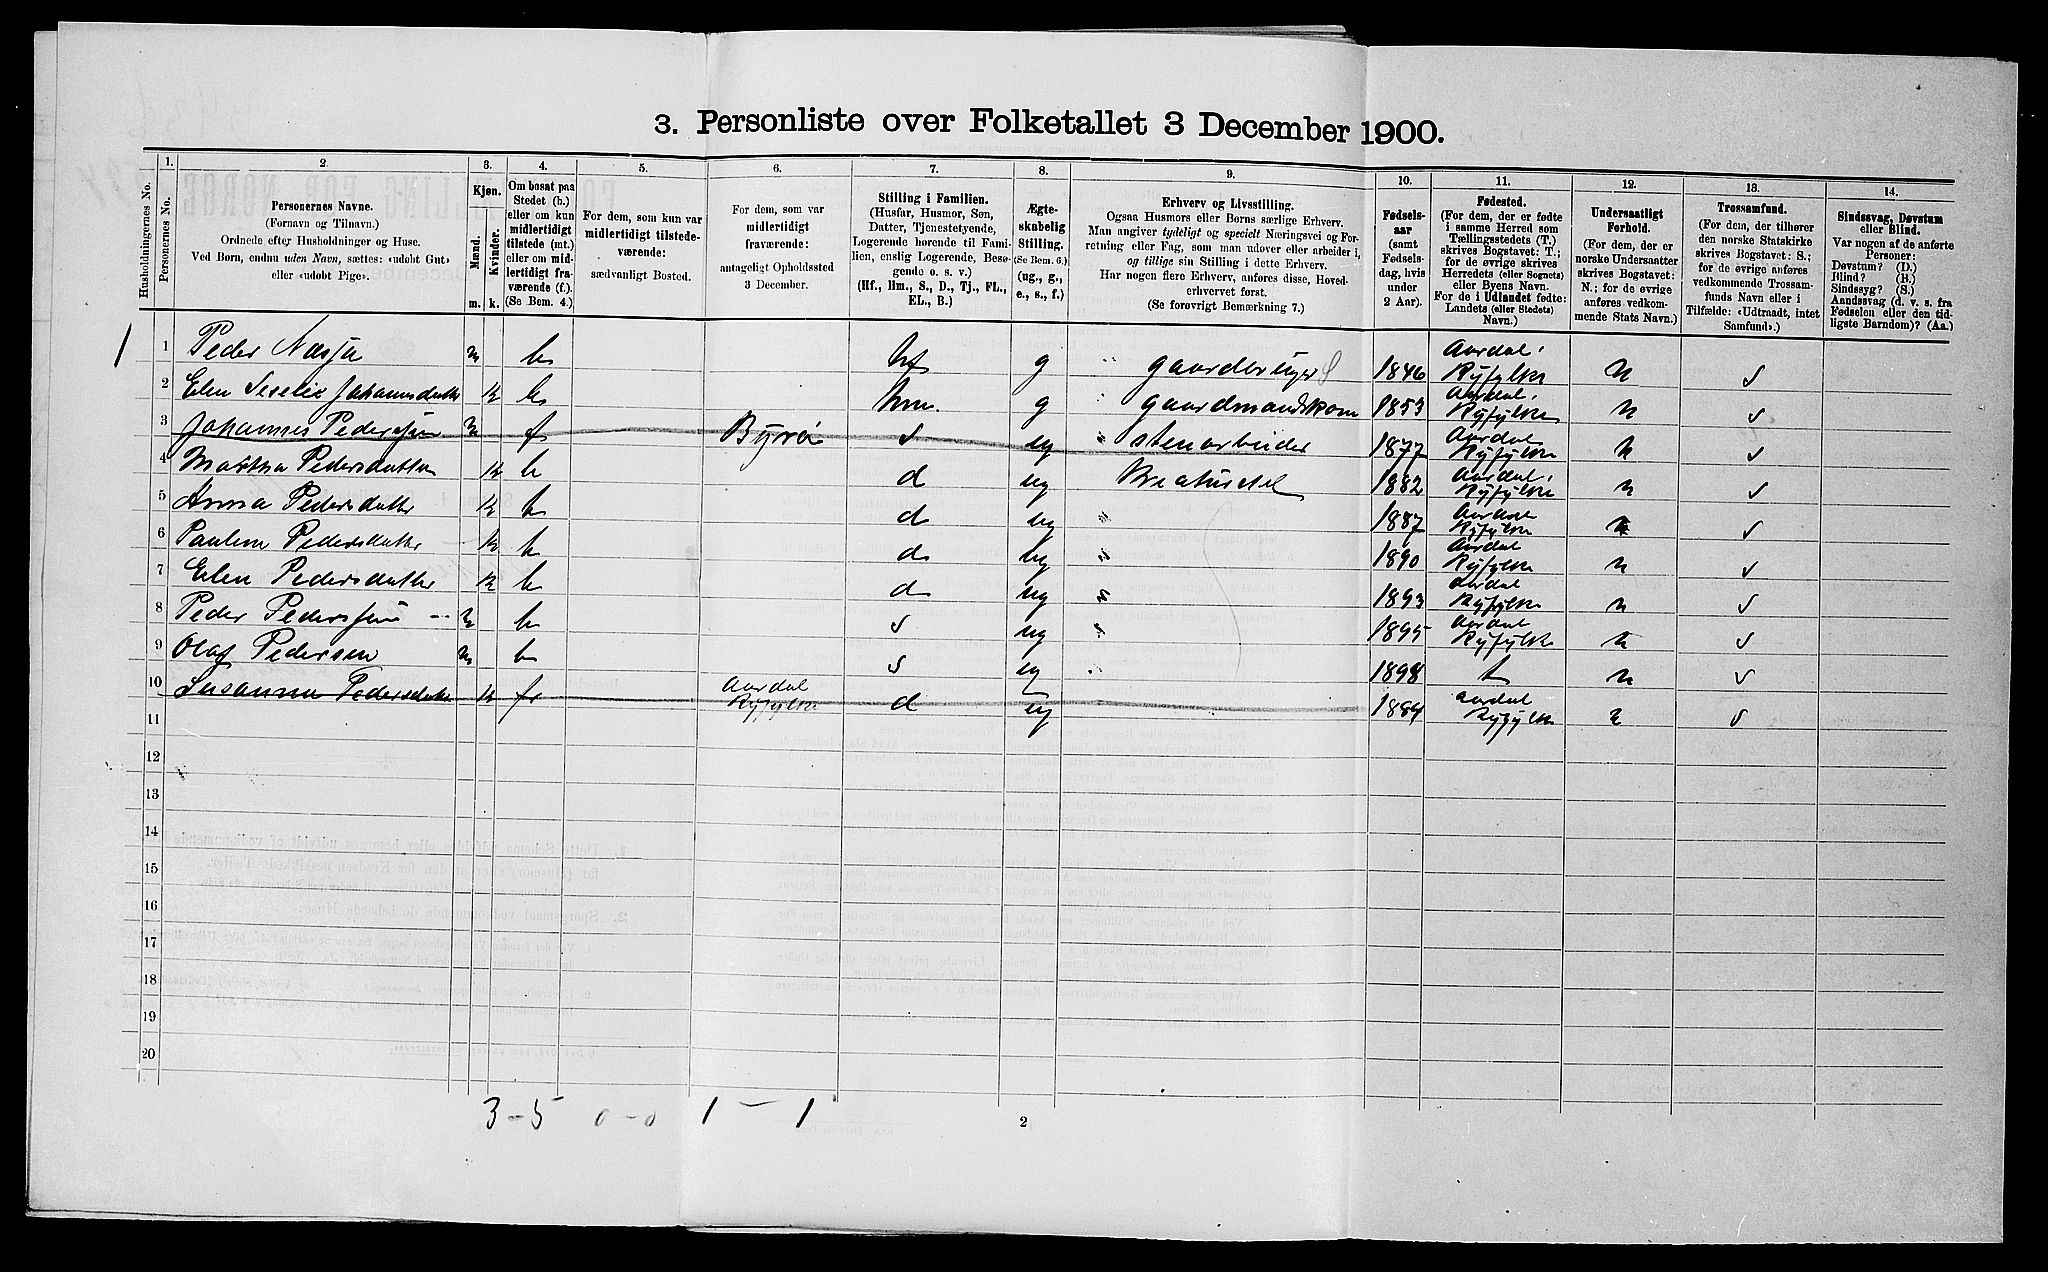 3. Personliste over Folketallet 3 December 1900.
Husholdningernes No.
1. Personernes No.
2. Personernes Navne. (Fornavn og Tilnavn.) Ordnede efter Husholdninger og Huse. Ved Børn, endnu uden Navn, sættes: «udøbt Gut» eller «udøbt Pige».
3. Kjøn. Mænd. Kvinder. m. k.
4. Om bosat paa Stedet (b.) eller om kun midlertidigt tilstede (mt.) eller om midlertidigt fraværende (f.). (Se Bem. 4.)
5. For dem, som kun var midlertidigt tilstedeværende: sædvanligt Bosted.
6. For dem, som var midlertidigt fraværende: antageligt Opholdssted 3 December.
7. Stilling i Familien. (Husfar, Husmor, Søn, Datter, Tjenestetyende, Logerende hørende til Familien, enslig Logerende, Besøgende o. s. v.) (Hf., Hm., S., D., Tj., FL., EL., B.)
8. Ægteskabelig Stilling. (Se Bem. 6.) (ug., g., e., s., f.)
9. Erhverv og Livsstilling. Ogsaa Husmors eller Børns særlige Erhverv. Man angiver tydeligt og specielt Næringsvei og Forretning eller Fag, som man udøver eller arbeider i, og tillige sin Stilling i dette Erhverv. Har nogen flere Erhverv, anføres disse, Hovederhvervet først. (Se forøvrigt Bemærkning 7.)
10. Fødselsaar (samt Fødselsdag, hvis under 2 Aar).
11. Fødested. (For dem, der er fødte i samme Herred som Tællingsstedets (T.) skrives Bogstavet: T.; for de øvrige skrives Herredets (eller Sognets) eller Byens Navn. For de i Udlandet fødte: Landets (eller Stedets) Navn.)
12. Undersaatligt Forhold. (For dem, der er norske Undersaatter skrives Bogstavet: N.; for de øvrige anføres vedkommende Stats Navn.)
13. Trossamfund. (For dem, der tilhører den norske Statskirke skrives Bogstavet: S.; for de øvrige anføres vedkommende Trossamfunds Navn eller i Tilfælde: «Udtraadt, intet Samfund».)
14. Sindssvag, Døvstum eller Blind. Var nogen af de anførte Personer: Døvstum? (D.) Blind? (B.) Sindssyg? (S.) Aandssvag (d. v. s. fra Fødselen eller den tidligste Barndom)? (Aa.)
1 1 Peder Nesja m b hf g gaardbruger S 1846 Aardal, Ryfylke n s
2 Elen Seselie Johannsdatter k b hm. g gaardmandskone 1853 Aardal, Ryfylke n s
3 Johannes Pederssen m f Byrø s ug stenarbeider 1877 Aardal Ryfylke n s
4 Martha Pedersdatter k b d ug Kreaturstel 1882 Aardal, Ryfylke n s
5 Anna Pedersdatter k b d ug " 1887 Aardal Ryfylke n s
6 Pauline Pedersdatter k b d ug " 1890 Aardal Ryfylke n s
7 Elen Pedersdatter k b d ug " 1893 Aardal Ryfylke n s
8 Peder Pederssen m b s ug " 1895 Aardal Ryfylke n s
9 Olaf Pedersen m b s ug " 1898 t n s
10 Susanna Pedersdatter k f Aardal Ryfylke d ug 1884 Aardal Ryfylke n s
11
12
13
14
15
16
17
18
19
20
3 - 5 0 - 0 1 - 1
2